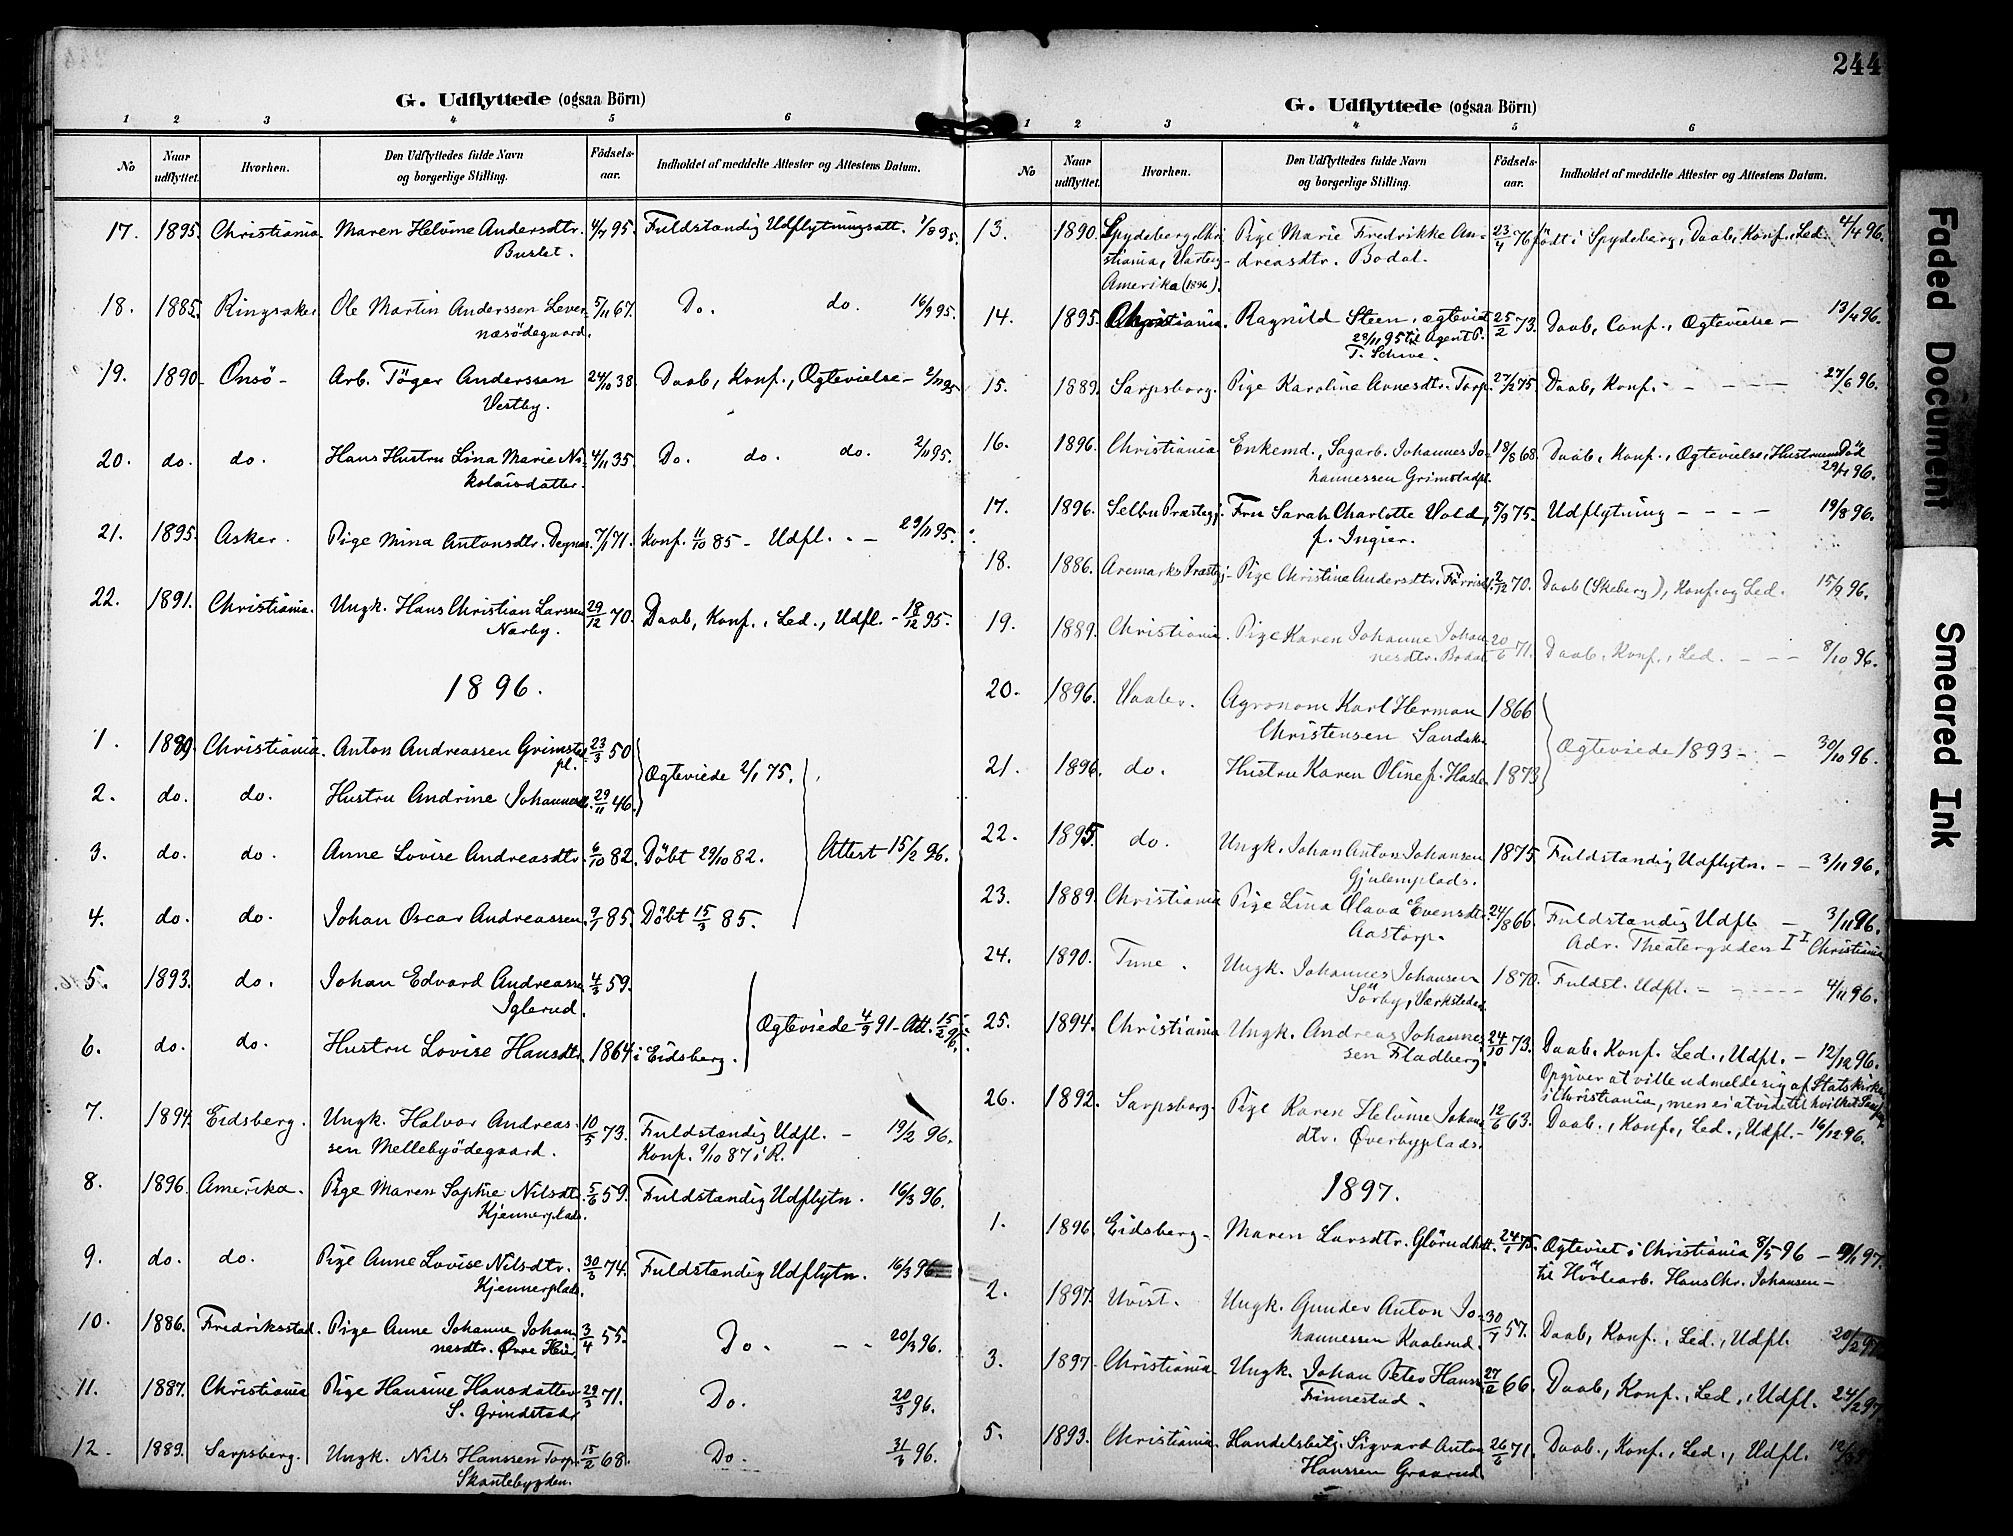 244
G. Udflyttede (ogsaa Börn)
1 2 3 4 5 6
No Naar udflyttet. Hvorhen. Den Udflyttedes fulde Navn og borgerlige Stilling. Födsels-aar. Indholdet af meddelte Attester og Attestens Datum.
17. 1895. Christiania. Maren Helvine Andersdtr. 4/7 95. Fuldstændig Udflytningsatt. 1/8 95.
Buslet.
18. 1885. Ringsaker. Ole Martin Anderssen Lever- 5/11 67. Do. do. 16/9 95.
næsödegaard.
19. 1890- Onsö- Arb. Töger Anderssen 24/10 38. Daab, Konf., Ægtevielse- 2/11 95
Vestby.
20. do. do. Hans Hustru Lina Marie Ni- 4/11 35. Do. do. do. 2/11 95.
kolaisdatter.
21. 1895. Asker. Pige Mina Antonsdtr. Degnæs. 7/1 71. Konf. 11/10 85 - Udfl. - - 29/11 95.
22. 1891. Christiania. Ungk. Hans Christian Larssen 29/12 70. Daab, Konf., Led., Udfl. - 18/12 95.
Narby.
1896.
1. 1889 Christiania. Anton Andreassen Grimstad 23/3 50
pl.
Ægteviede 2/1 75.
2. do. do. Hustru Andrine Johannesdt. 29/11 46.
3. do. do. Anne Lovise Andreasdtr. 6/10 82. Döbt 29/10 82. Attest 15/2 96.
4. do. do. Johan Oscar Andreassen. 9/1 85. Döbt 15/3 85.
5. 1893. do. Johan Edvard Andreass. 4/3 59.
Iglerud.
Ægteviede 4/9 91 - Att. 15/2 96.
6. do. do. Hustru Lovise Hansdtr. 1864. i Eidsberg.
7. 1894. Eidsberg. Ungk. Halvor Andreas- 10/5 73. Fuldstændig Udfl. - 19/2 96.
sen Mellebyödegaard. Konf. 9/10 87 i R.
8. 1896. Amerika. Pige Maren Sophie Nilsdtr. 5/6 59. Fuldstændig Udflytn. 16/3 96.
Kjennerplads.
9. do. do. Pige Anne Lovise Nilsdtr. 30/3 74. Fuldstændig Udflytn. 16/3 96
Kjennerplads.
10. 1886. Fredriksstad. Pige Anne Johanne Johan- 3/4 55. Do. - - 20/3 96.
nesdtr. Øvre Heier.
11. 1887. Christiania Pige Hansine Hansdatter 29/3 71. Do. 20/3 96.
S. Grindstad
12. 1889. Sarpsberg. Ungk. Nils Hanssen Torp 15/2 68. Do. 31/3 96.
Skantebygden.
G. Udflyttede (ogsaa Börn)
1 2 3 4 5 6
No Naar udflyttet. Hvorhen. Den Udflyttedes fulde Navn og borgerlige Stilling. Födsels-aar. Indholdet af meddelte Attester og Attestens Datum.
13. 1890. Spydeberg, Chri- Pige Marie Fredrikke An- 23/4 76 födt i Spydeberg, Daab, Konf., Led. 4/4 96.
stiania, Varteig- dreasdtr. Bodal.
Amerika (1896).
14. 1895. Christiania. Ragnild Steen, ægteviet 25/2 73. Daab, Conf., Ægtevielse - 13/4 96.
28/11 95 til Agent P.
T. Schive.
15. 1889. Sarpsborg. Pige Karoline Arnesdtr. Torp. 27/2 75. Daab, Konf. - - - - - 27/6 96.
16. 1896. Christiania Enkemd., Sagarb. Johannes Jo- 18/8 68. Daab, Konf., Ægtevielse, Hustruens Död
hannessen Grimstadpl. 29/7 96.
17. 1896. Selbu Præstegj. Fru Sarah Charlotte Vold, 5/9 75. Udflytning - - - - 19/8 96.
f. Ingier.
18. 1886. Aremarks Præstegj- Pige Christine Andersdtr. 2/12 70. Daab (Skeberg), Konf. og Led. 15/9 96.
19. 1889. Christiania. Pige Karen Johanne Johan- 20/6 71. Daab, Konf., Led. - - - 8/10 96.
nesdtr. Bodal
20. 1896. Vaaler. Agronom Karl Herman 1866
Christensen Sandak
Ægteviede 1893 - - 30/10 96.
21. 1896. do. Hustru Karen Oline f. Hasle 1873
22. 1895 do. Ungk. Johan Anton Johansen 1875. Fuldstændig Udflytn. - - 3/11 96.
Gjulemplads.
23. 1889. Christiania Pige Lina Olava Evensdtr. 24/8 66. Fuldstændig Udfl. - 3/11 96.
Aastorp. Adr. Theatergaden I Christiania
24. 1890. Tune. Ungk. Johannes Johansen 1870. Fuldst. Udfl. - - - - - 4/11 96.
Sörby, Værksteden
25. 1894. Christiania Ungk. Andreas Johannes- 24/10 73. Daab. Konf. Led., Udfl. - 12/12 96.
sen Fladberg. Opgiver at ville udmelde sig af Statskirken
i Christiania, men ei at vide til hvilket Samf.
26. 1892. Sarpsborg. Pige Karen Helvine Johans- 12/6 63. Daab., Konf., Led., Udfl. - 16/12 96.
dtr. Øverbyplads.
1897.
1. 1896. Eidsberg- Maren Larsdtr. 24/1 75. Ægteviet i Christiania 8/5 96 - 9/1 97.
til Hövlearb. Hans Chr. Johansen -
2. 1897. Uvist. Ungk. Gunder Anton Jo- 30/7 57. Daab, Konf., Led., Udfl. 20/2 97
hannessen Kaalerud.
3. 1897- Christiania Ungk. Johan Peter Hanss 27/2 66. Daab, Konf., Led., Udfl. 24/2 97
Finnestad.
5. 1893. Christiania. Handelsbetj. Sigvard Anton 26/6 71. Daab., Konf., Led., Udfl.
Hanssen Graarud.
Faded Document
Smeared Ink